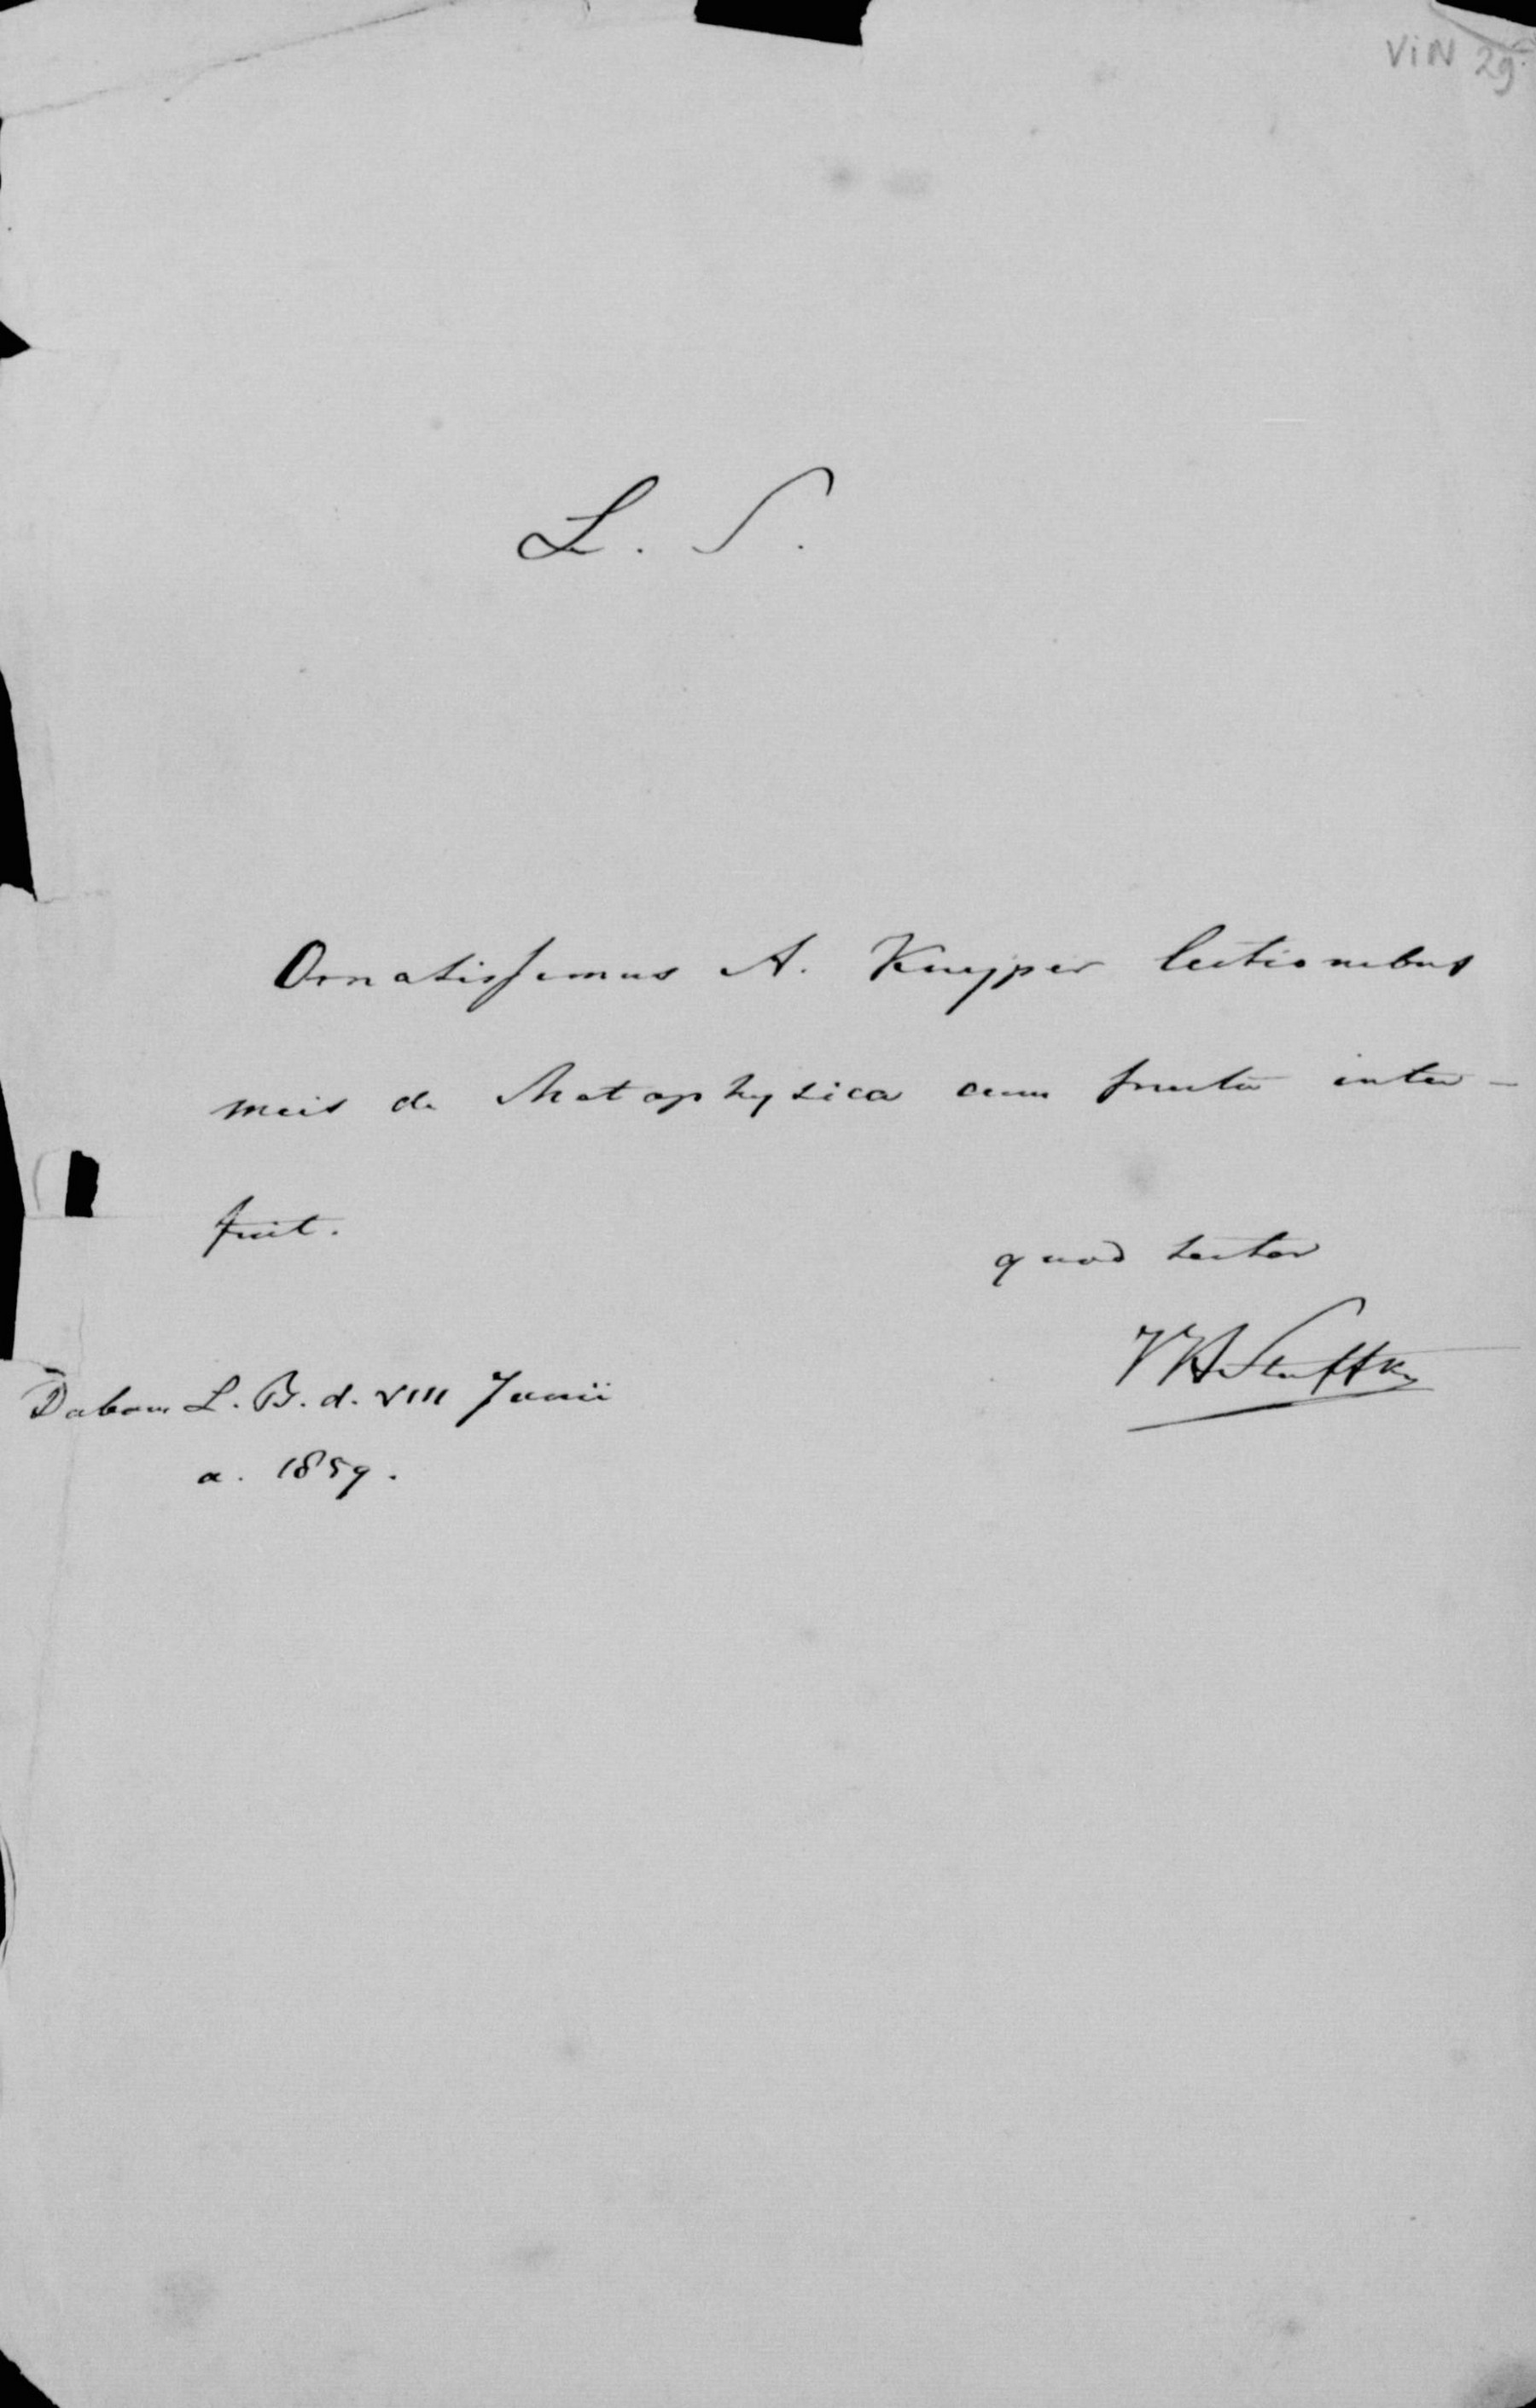 ViN 29
L. S.
Ornatissimus A. Kuyper lectionibus
meis de Metaphysica cum fructu inter-
fuit.
quod testor
Dabam L. B. d. VIII Junii
a. 1859.